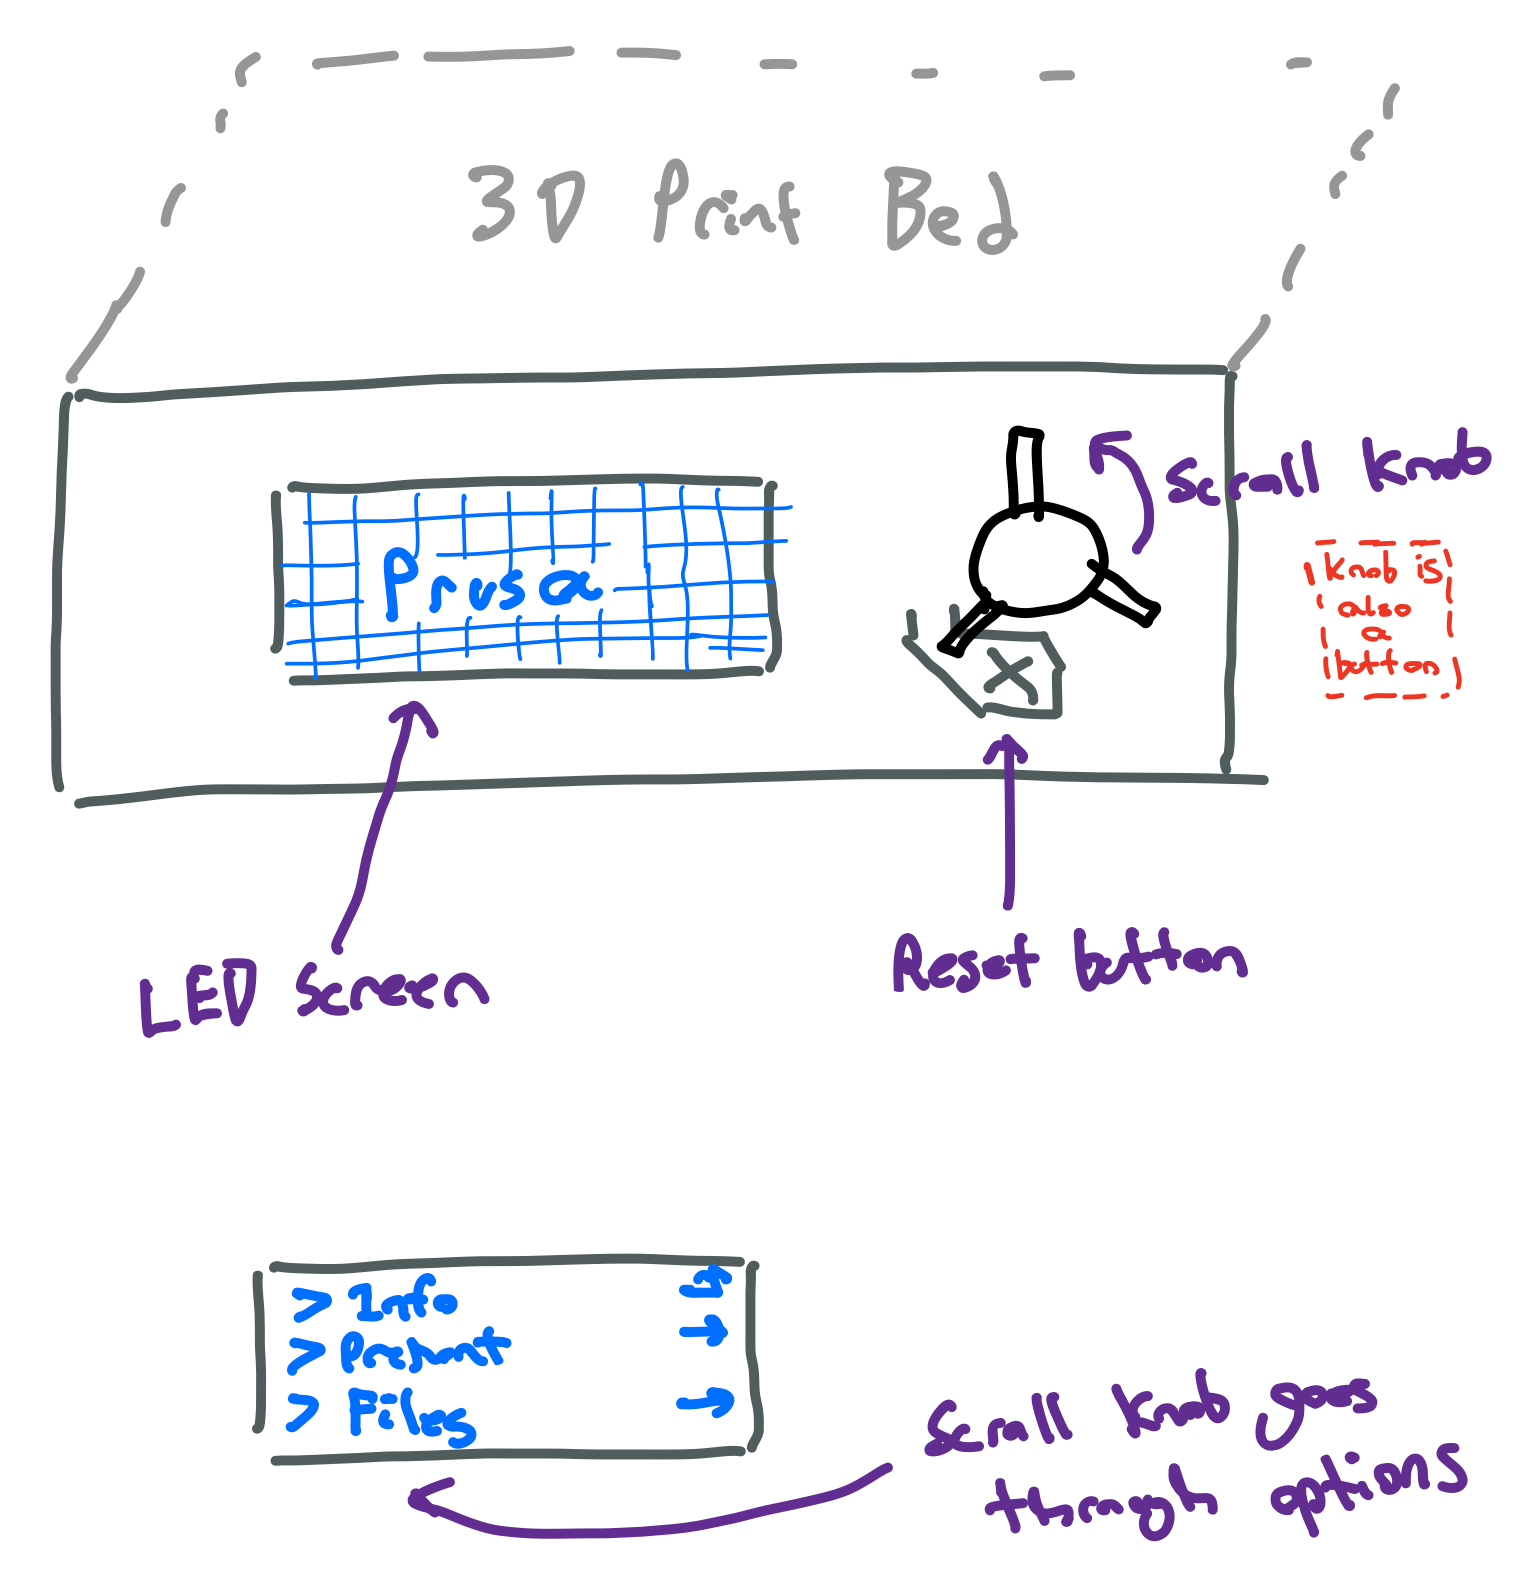 3D Print Bed
Scroll Knob
Knob is
also
a
button
Prusa
X
LED Screen
Reset button
> Info →
> Preheat →
> Files →
Scroll Knob goes
through options